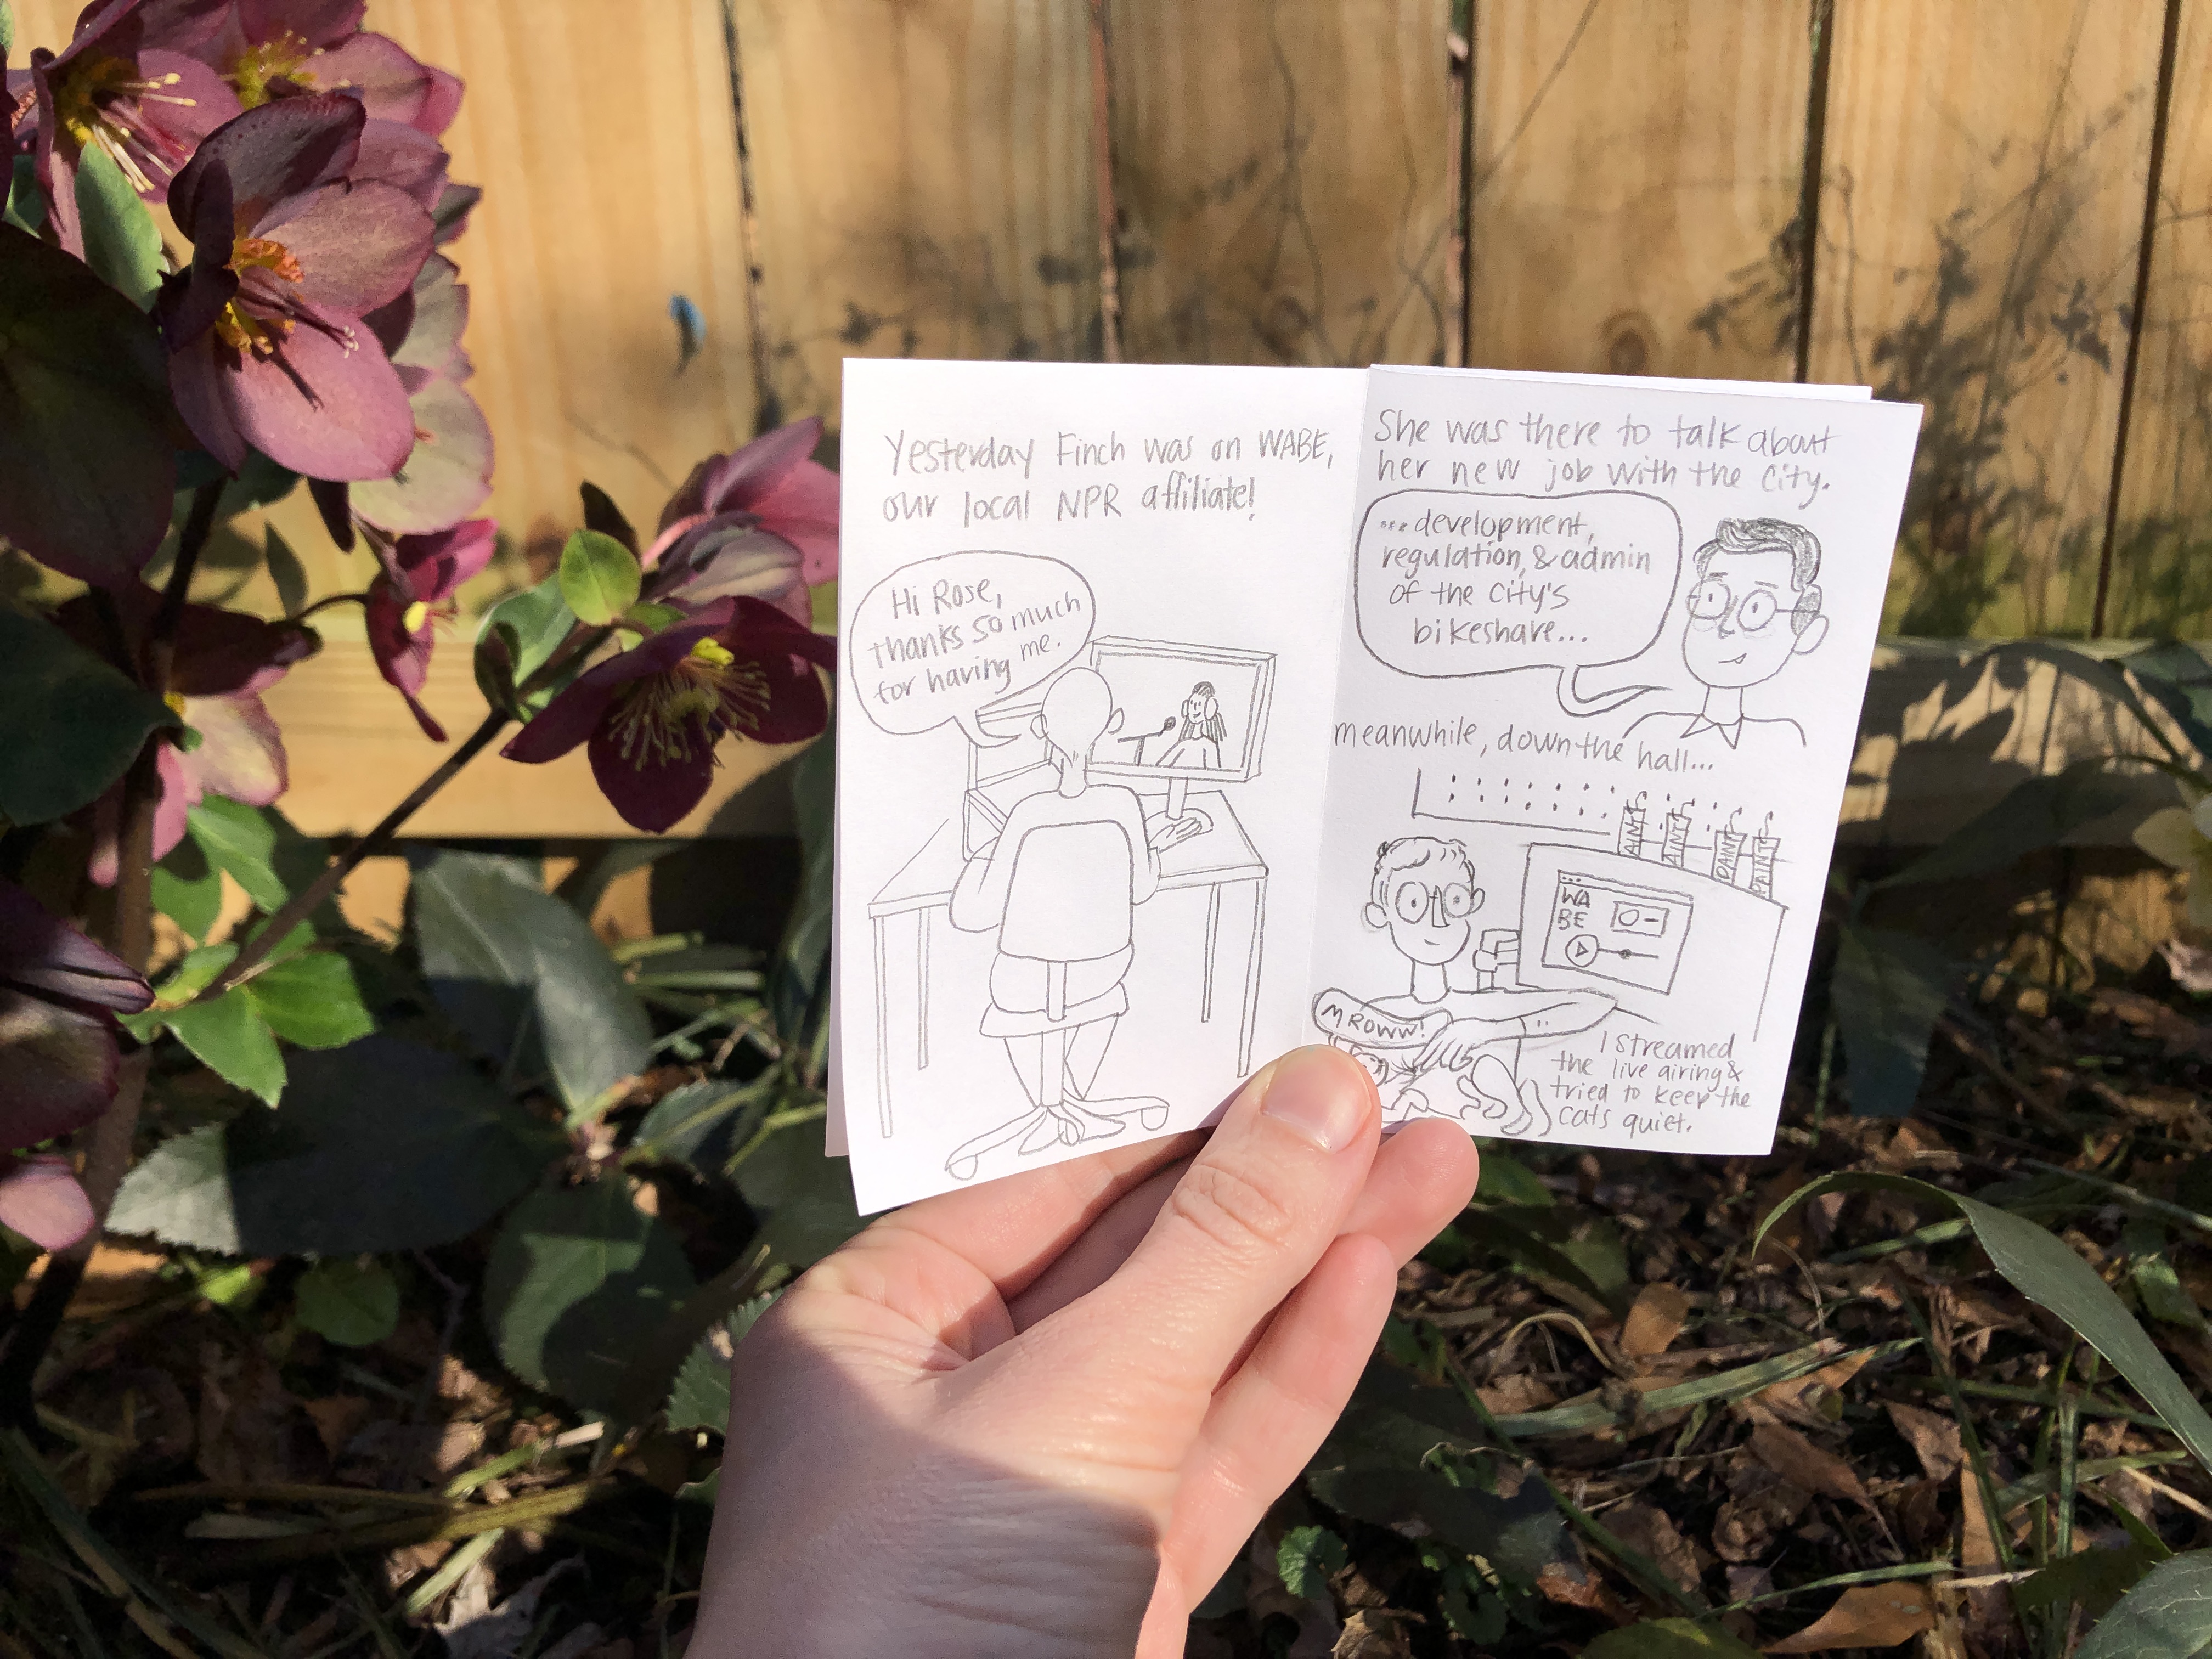 Yesterday Finch was on WABE,
our local NPR affiliate!
Hi Rose,
thanks so much
for having me.
She was there to talk about
her new job with the City.
...development,
regulation, & admin
of the City's
bikeshare...
meanwhile, down the hall...
PAINT
PAINT
PAINT
PAINT
WA
BE
MROWW!
I streamed
the live airing &
tried to keep the
cats quiet.